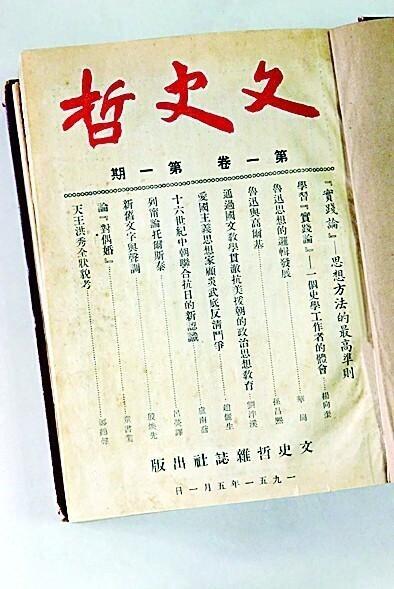 文史哲
第一卷 第一期
『實踐論』——思想方法的最高準則
學習『實踐論』——一個史學工作者的體會……楊向奎
魯迅思想的邏輯發展……華崗
魯迅與高爾基……孫昌熙
通過國文教學貫徹抗美援朝的政治思想教育……劉泮溪
愛國主義思想家顧炎武底反清鬥爭……趙儷生
十六世紀中朝聯合抗日的新認識……盧南喬
列甯論托爾斯泰……呂熒譯
新舊文字與聲調……殷煥先
論『對偶婚』……童書業
天王洪秀全狀貌考……鄭鶴聲
文史哲雜誌社出版
一九五一年五月一日